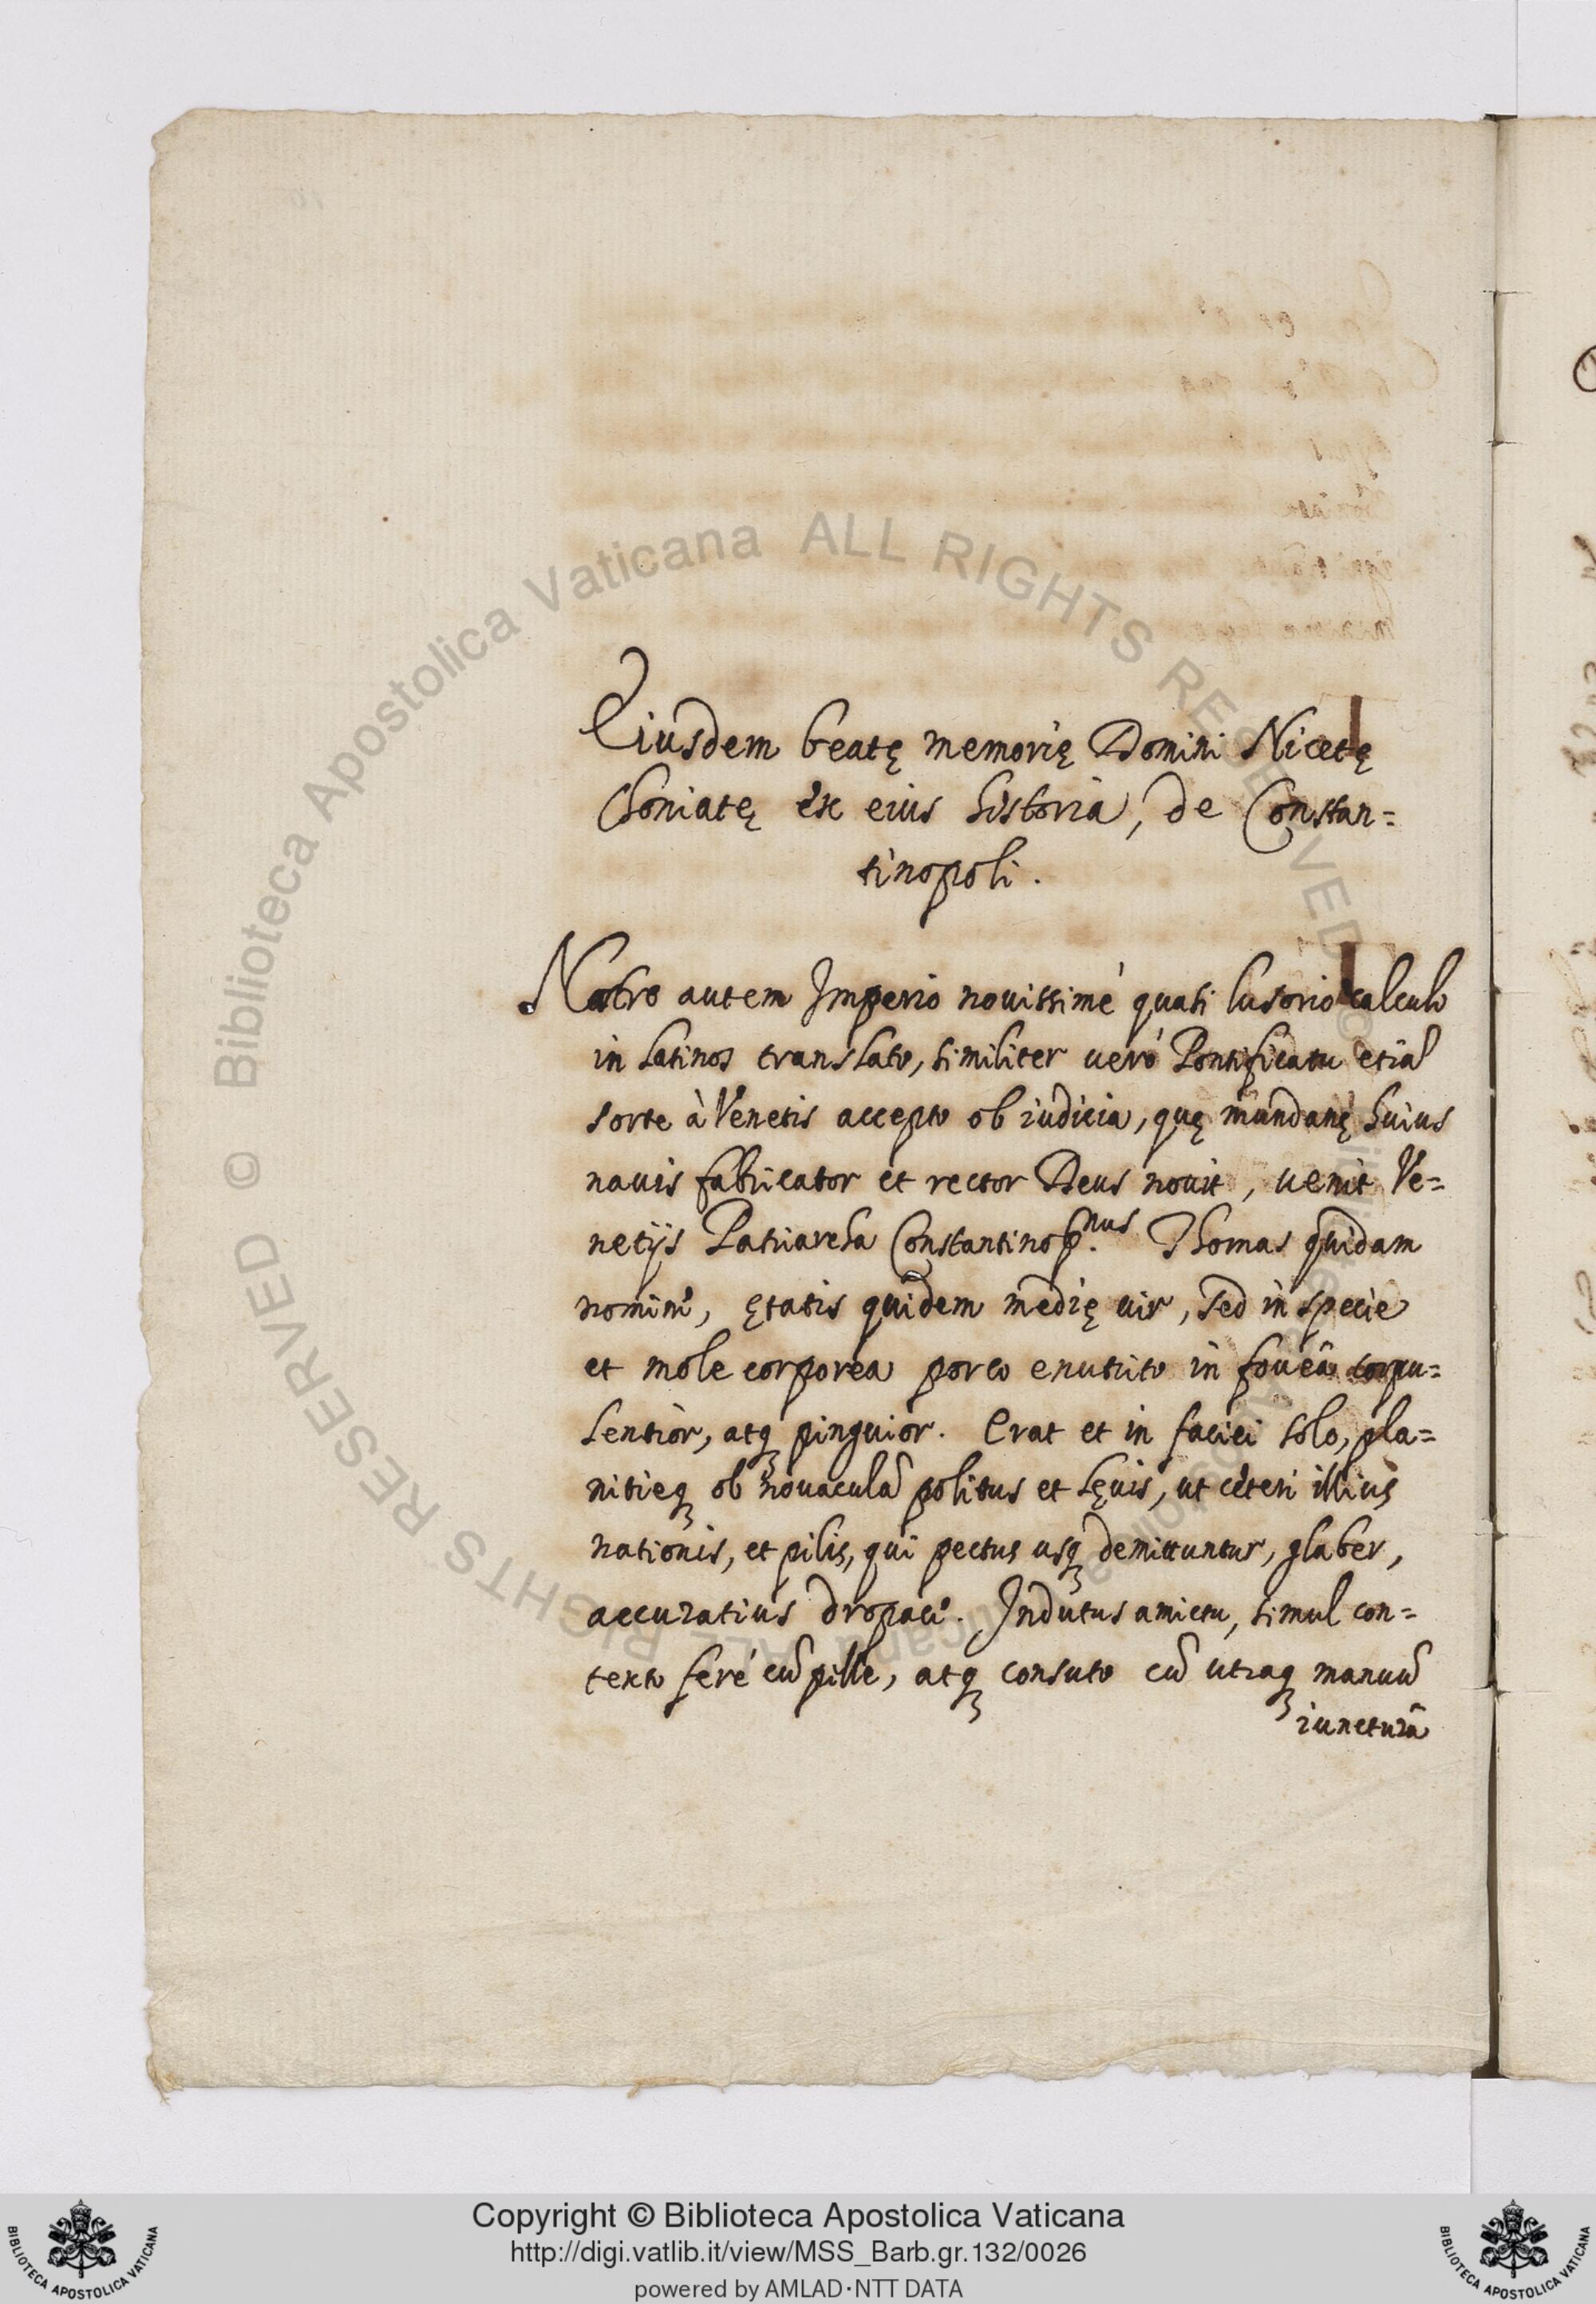 Eiusdem beatę memorię Domini Nicetę
Choniatę ex eius historia, de Constan=
tinopoli.
Nostro autem Imperio nouissimè quasi lusorio calculo
in Latinos translato, similiter uerò Pontificatu etiã
sorte à Venetis accepto ob iudicia, quę mundanę huius
nauis fabricator et rector Deus nouit, uenit Ve=
netijs Patriarcha Constantinop.nus Thomas quidam
nomine, ętatis quidem medię uir, sed in specie
et mole corporea porco enutrito in foueâ corpu=
lentior, atq pinguior. Erat et in faciei solo, pla=
nitieq ob nouaculã politus et lęuis, ut ceteri illius
nationis, et pilis, qui pectus usq demittuntur, glaber,
accuratius dropace. Indutus amictu, simul con=
texto ferè cũ pelle, atq consuto cũ utraq manuũ
iuncturâ
© Biblioteca Apostolica Vaticana ALL RIGHTS RESERVED © Biblioteca Apostolica Vaticana ALL RIGHTS RESERVED
Copyright © Biblioteca Apostolica Vaticana
http://digi.vatlib.it/view/MSS_Barb.gr.132/0026
powered by AMLAD·NTT DATA
BIBLIOTECA APOSTOLICA VATICANA
BIBLIOTECA APOSTOLICA VATICANA